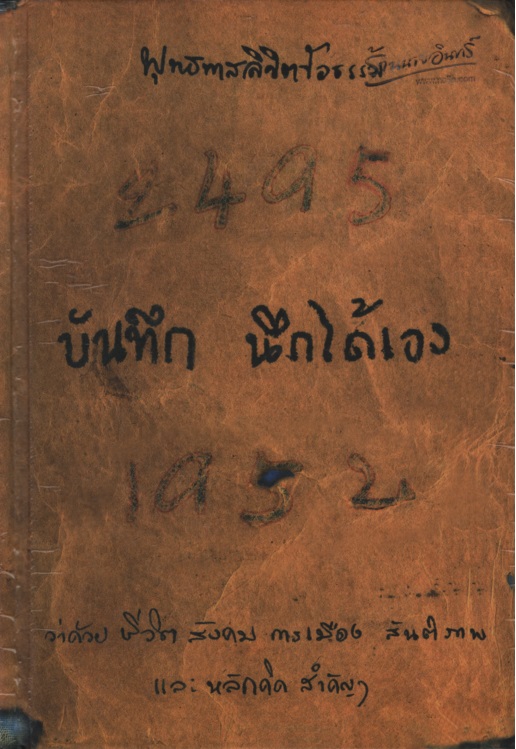 พุทธทาสลิขิตข้อธรรม
ร้านนายอินทร์
2495
บันทึก นึกได้เอง
1952
ว่าด้วย ชีวิต สังคม การเมือง สันติภาพ
และ หลักคิด สำคัญๆ